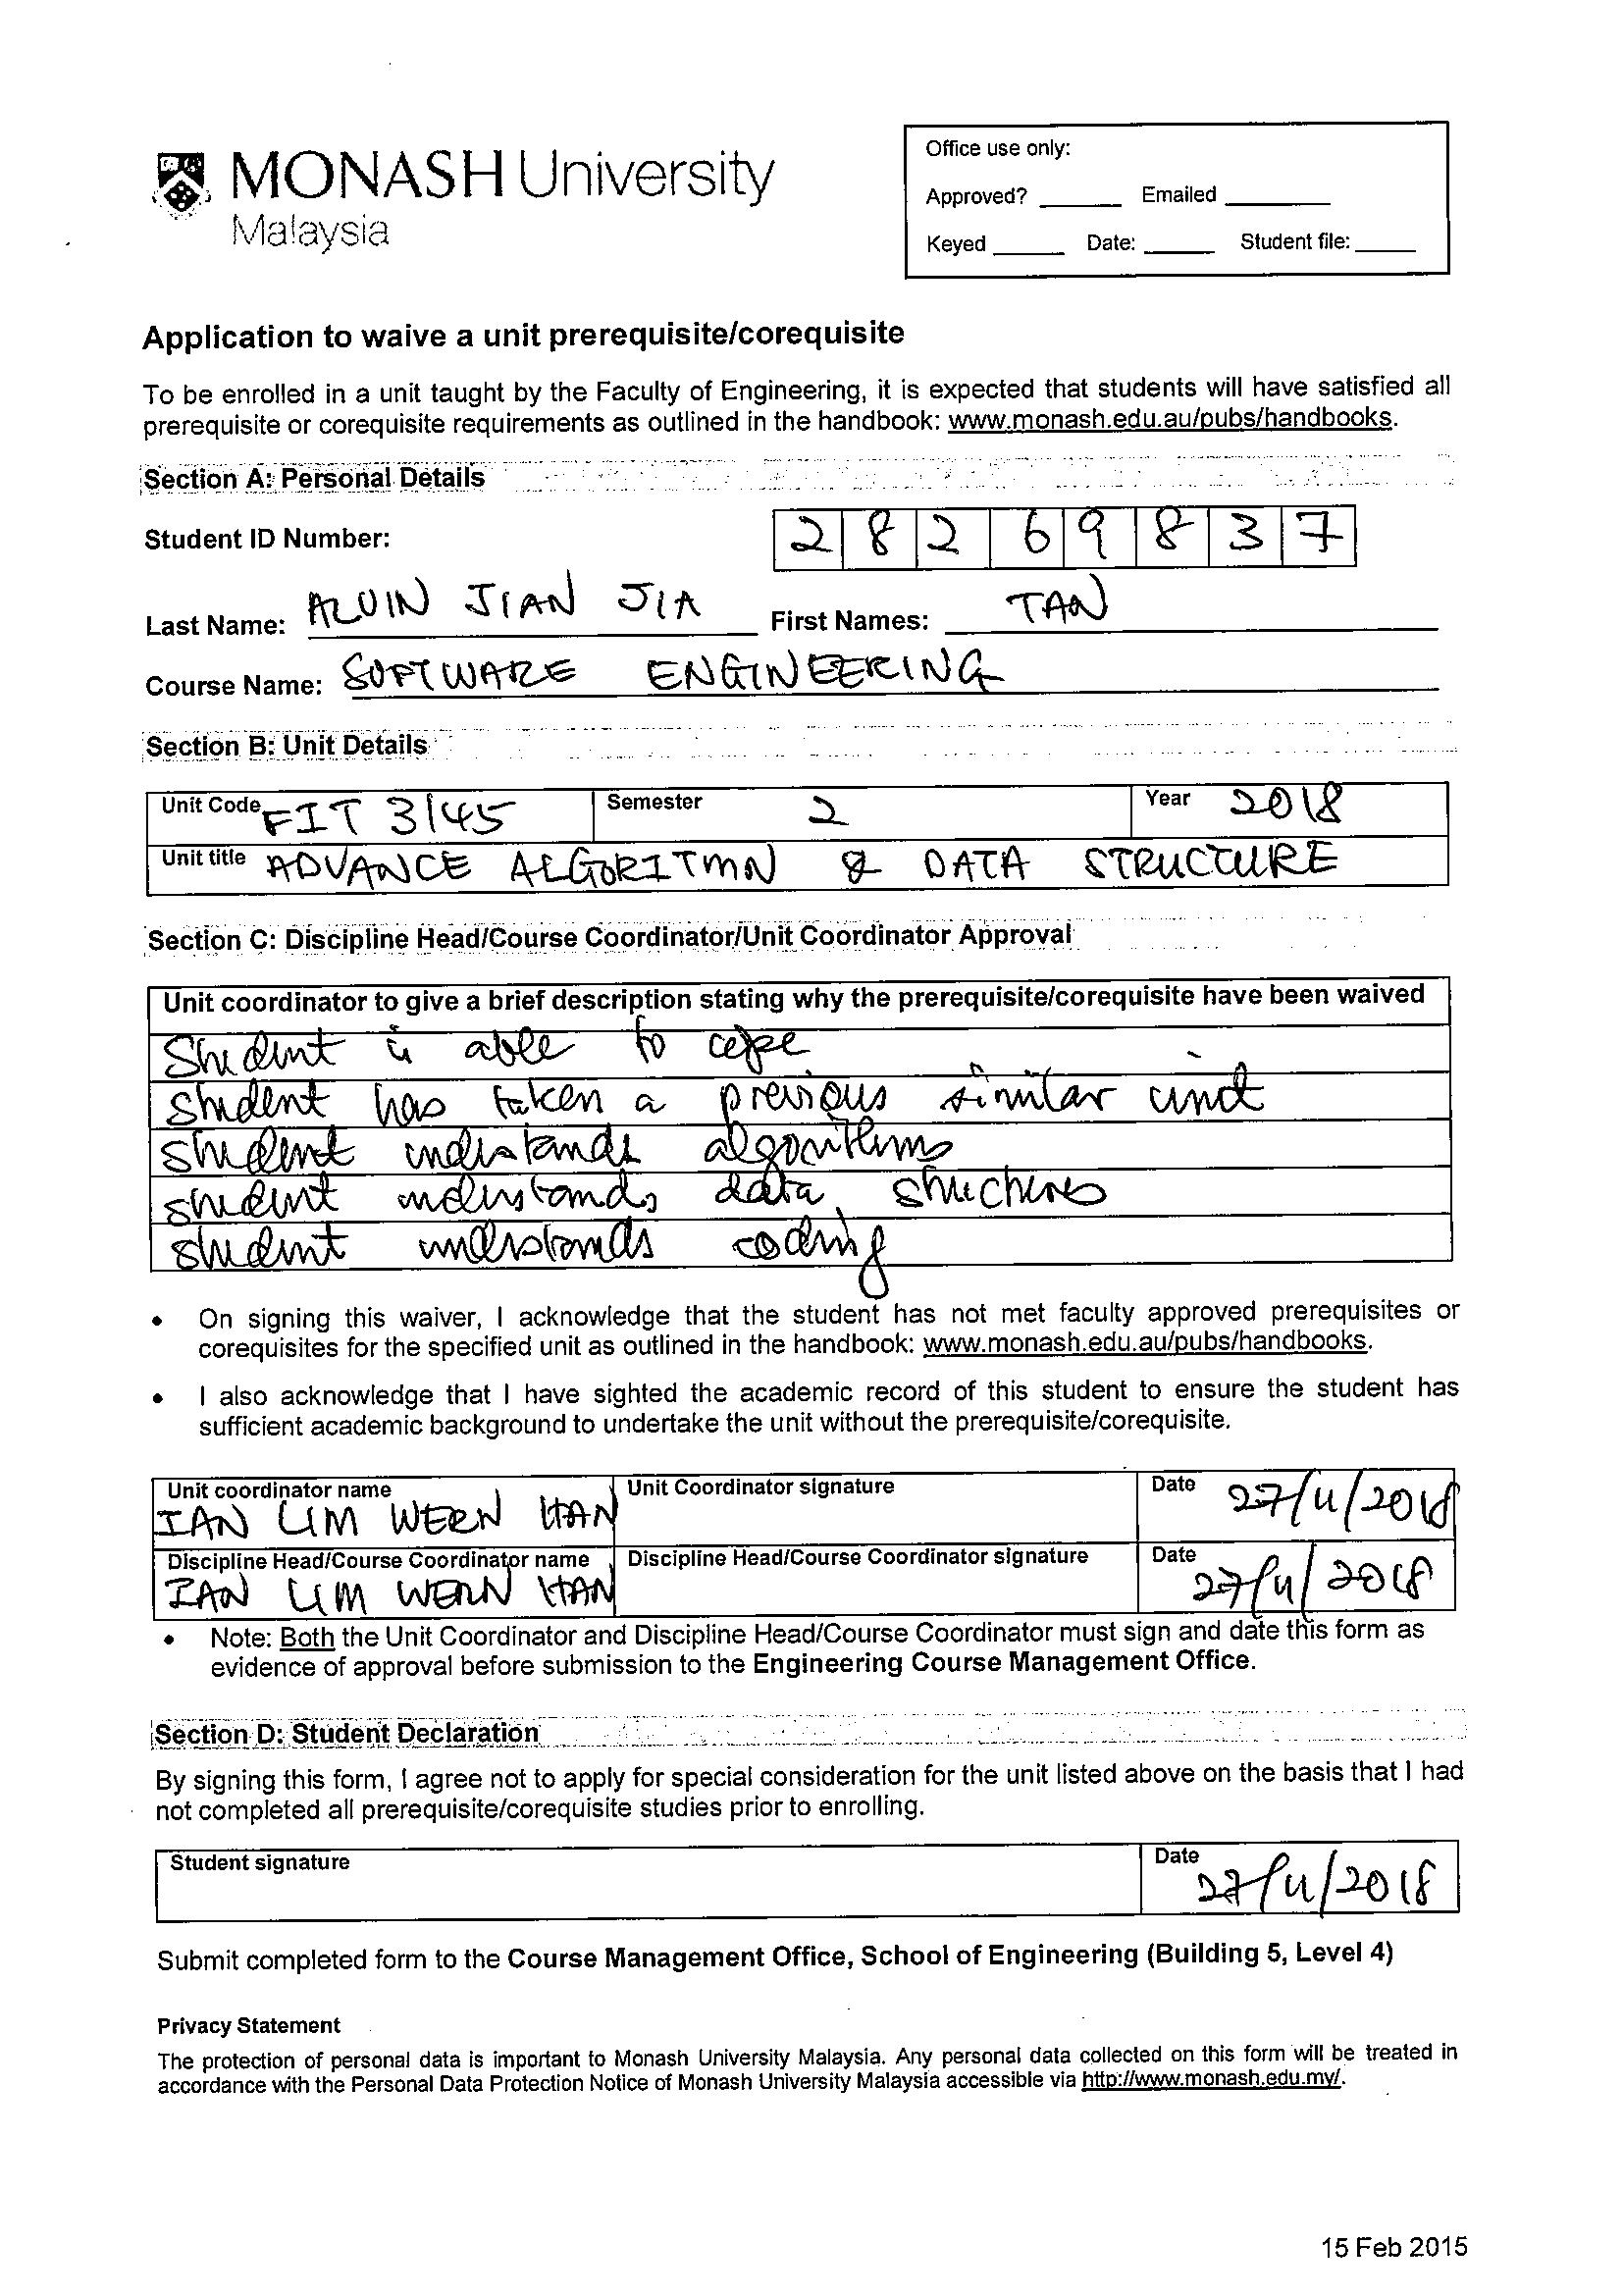 MONASH University
Malaysia
Office use only:
Approved? ______ Emailed ______
Keyed ______ Date: ______ Student file: ______
Application to waive a unit prerequisite/corequisite
To be enrolled in a unit taught by the Faculty of Engineering, it is expected that students will have satisfied all
prerequisite or corequisite requirements as outlined in the handbook: www.monash.edu.au/pubs/handbooks.
Section A: Personal Details
Student ID Number: 2 8 2 6 9 8 3 7
Last Name: ALVIN JIAN JIA First Names: TAN
Course Name: SOFTWARE ENGINEERING
Section B: Unit Details
Unit Code FIT 3145 Semester 2 Year 2018
Unit title ADVANCE ALGORITMN & DATA STRUCTURE
Section C: Discipline Head/Course Coordinator/Unit Coordinator Approval
Unit coordinator to give a brief description stating why the prerequisite/corequisite have been waived
Student is able to cope
Student has taken a previous similar unit
Student understands algorithms
student understands data structures
student understands coding
• On signing this waiver, I acknowledge that the student has not met faculty approved prerequisites or
corequisites for the specified unit as outlined in the handbook: www.monash.edu.au/pubs/handbooks.
• I also acknowledge that I have sighted the academic record of this student to ensure the student has
sufficient academic background to undertake the unit without the prerequisite/corequisite.
Unit coordinator name Unit Coordinator signature Date 27/11/2018
IAN LIM WERN HAN
Discipline Head/Course Coordinator name Discipline Head/Course Coordinator signature Date 27/11/2018
IAN LIM WERN HAN
• Note: Both the Unit Coordinator and Discipline Head/Course Coordinator must sign and date this form as
evidence of approval before submission to the Engineering Course Management Office.
Section D: Student Declaration
By signing this form, I agree not to apply for special consideration for the unit listed above on the basis that I had
not completed all prerequisite/corequisite studies prior to enrolling.
Student signature Date 27/11/2018
Submit completed form to the Course Management Office, School of Engineering (Building 5, Level 4)
Privacy Statement
The protection of personal data is important to Monash University Malaysia. Any personal data collected on this form will be treated in
accordance with the Personal Data Protection Notice of Monash University Malaysia accessible via http://www.monash.edu.my/.
15 Feb 2015